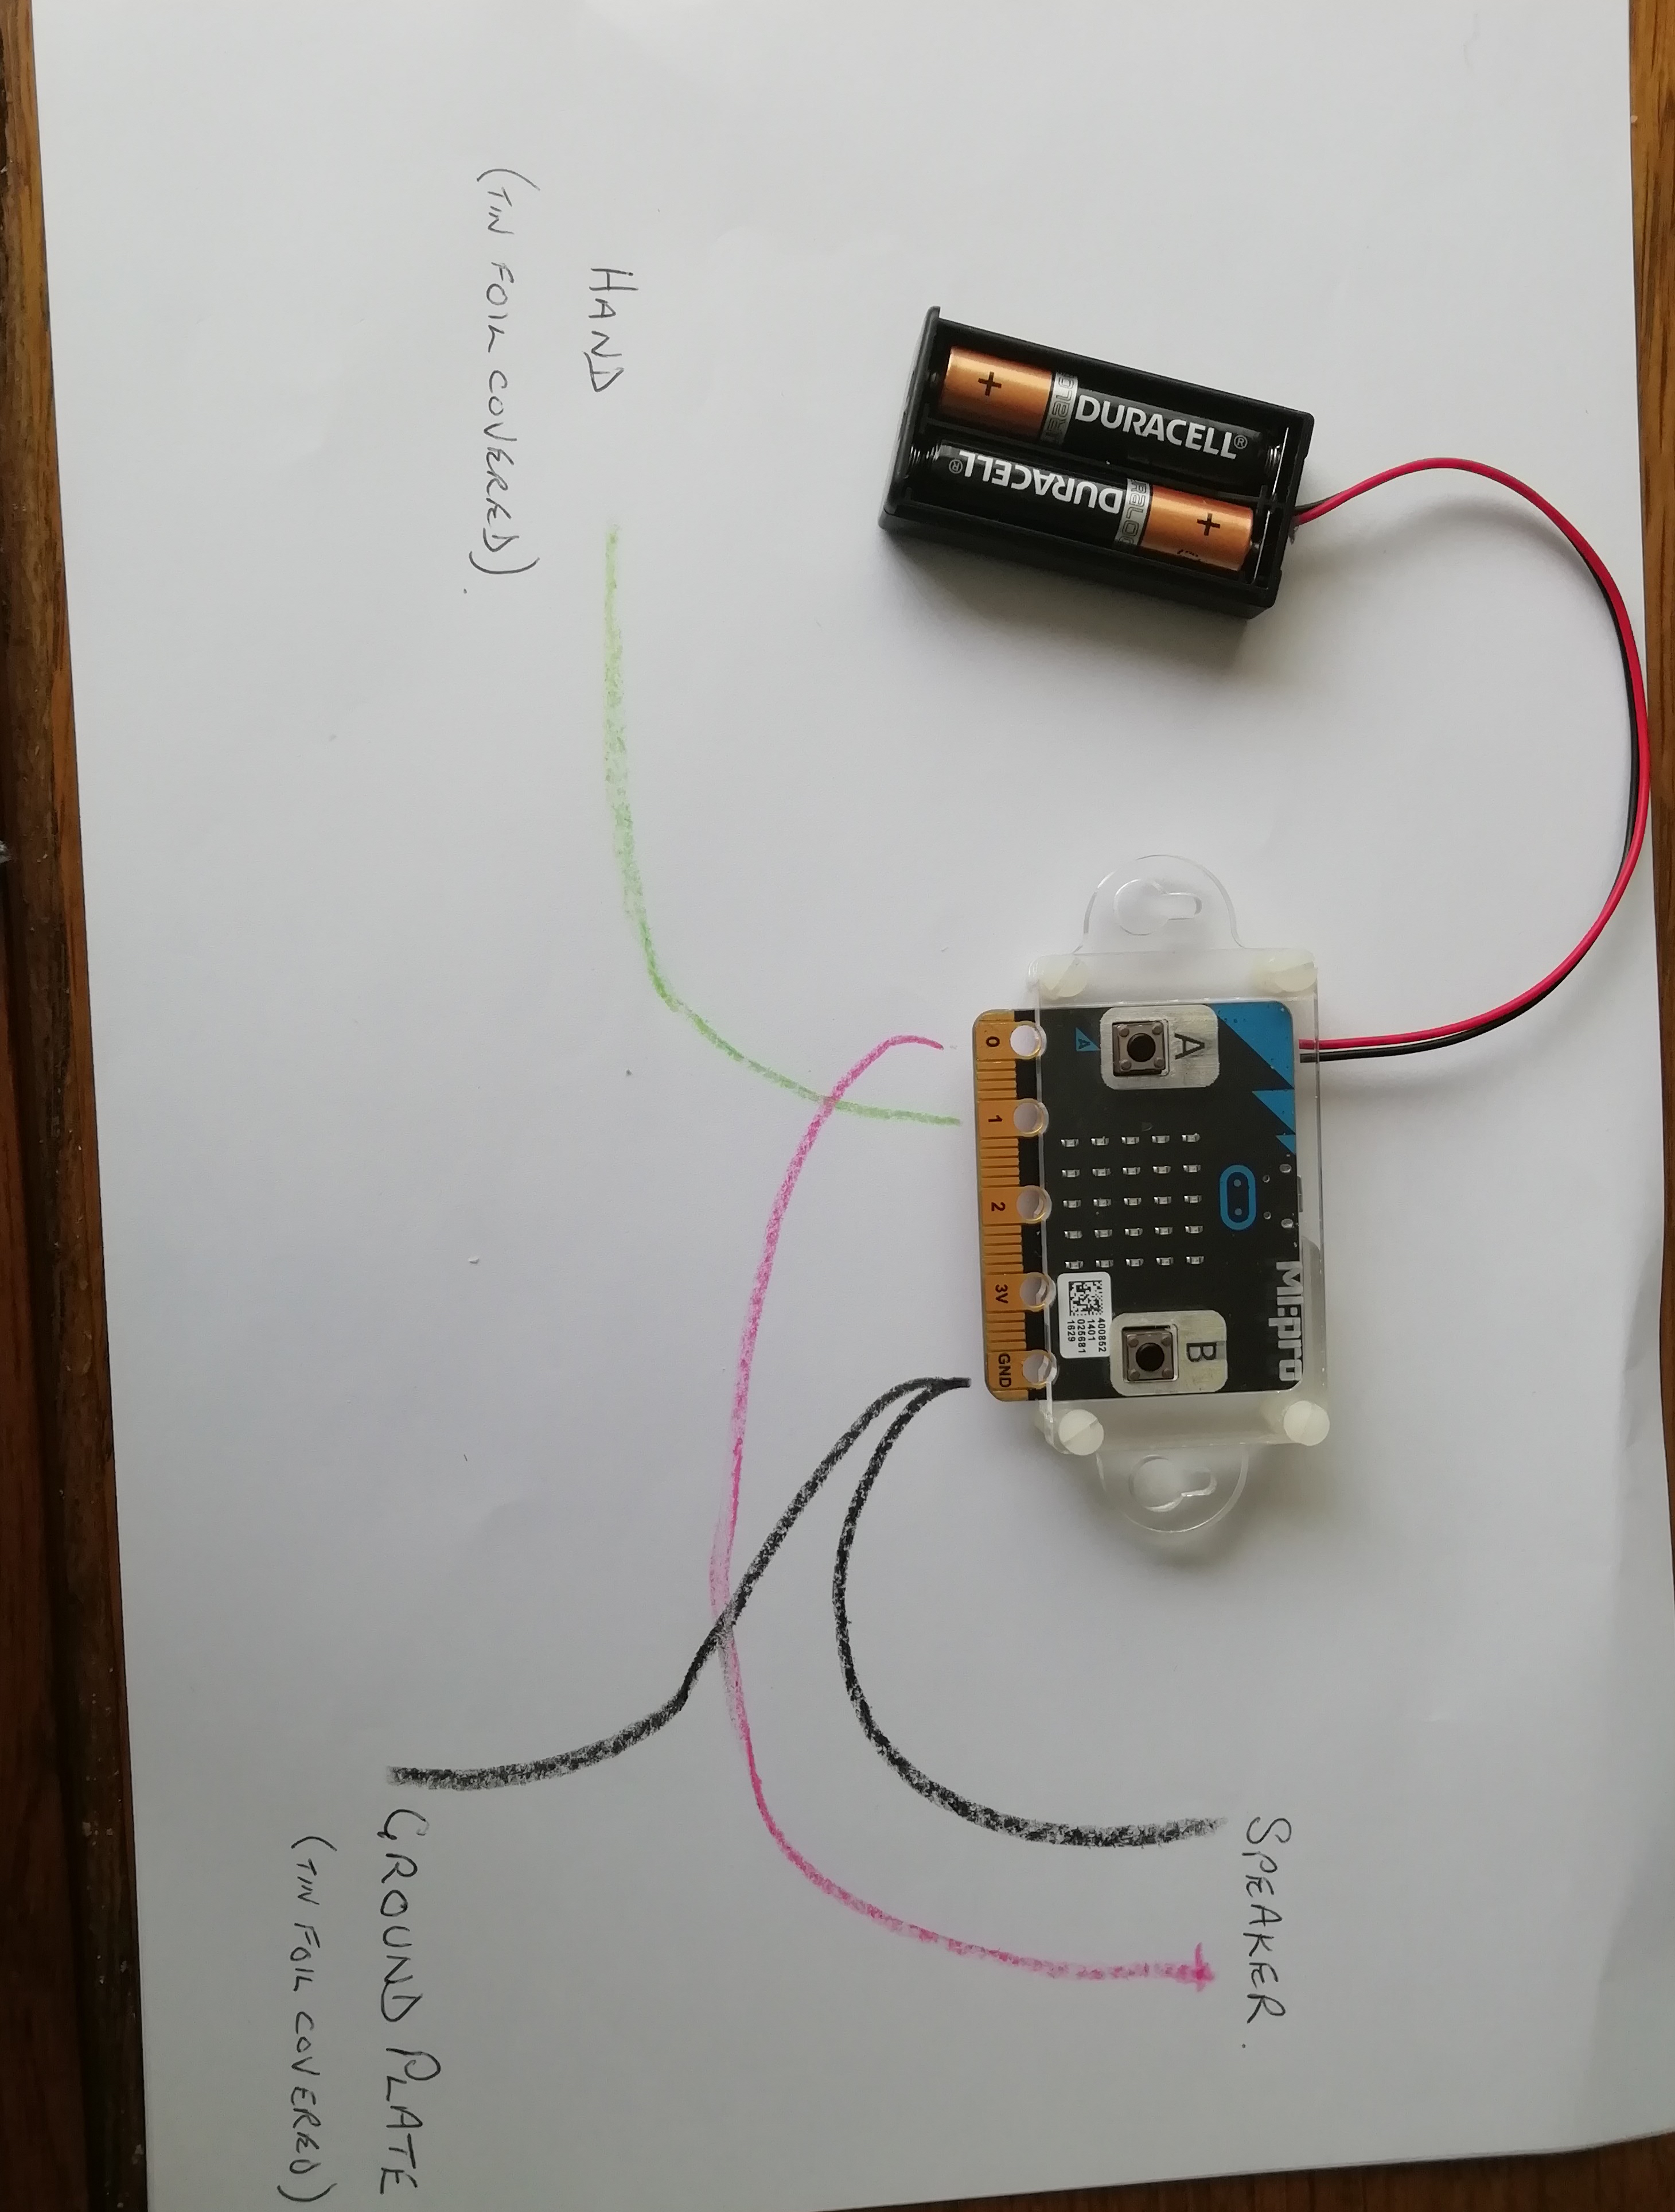 MI:pro
A
B
DURACELL®
DURACELL®
+
+
A
400852
1401
025681
1629
0
1
2
3V
GND
SPEAKER.
+
HAND
(TIN FOIL COVERED).
GROUND PLATE
(TIN FOIL COVERED)